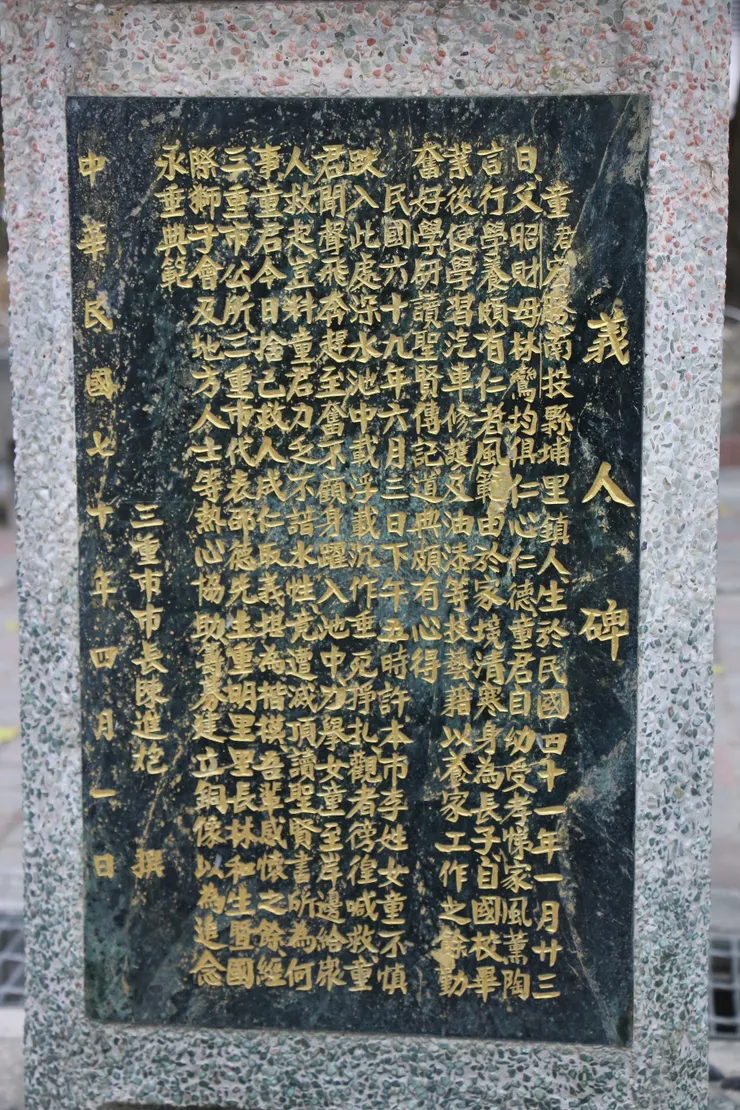 義人碑
童君 勝南投縣埔里鎮人生於民國四十一年一月廿三
日父昭財母林鸞均俱仁心仁德童君自幼受孝悌家風薰陶
言行學養頗有仁者風範由於家境清寒身為長子自國校畢
業後侵學習汽車修護及油漆等技藝藉以養家工作之餘勤
奮好學研讀聖賢傳記道典頗有心得
民國六十九年六月三日下午五時許本市李姓女童不慎
跌入此處深水池中載浮載沉作垂死掙扎觀者徬徨喊救童
君聞聲飛奔趕至奮不顧身躍入池中力舉女童至岸邊給眾
人救起豈料童君力乏不諳水性竟遭滅頂讀聖賢書所為何
事童君今日捨己救人成仁取義堪為楷模吾輩感懷之餘經
三重市公所三重市代表邵德先生重明里里長林和生暨國
際獅子會及地方人士等熱心協助籌募建立銅像以為追念
永垂典範
三重市市長陳進炮 撰
中華民國七十年四月一日